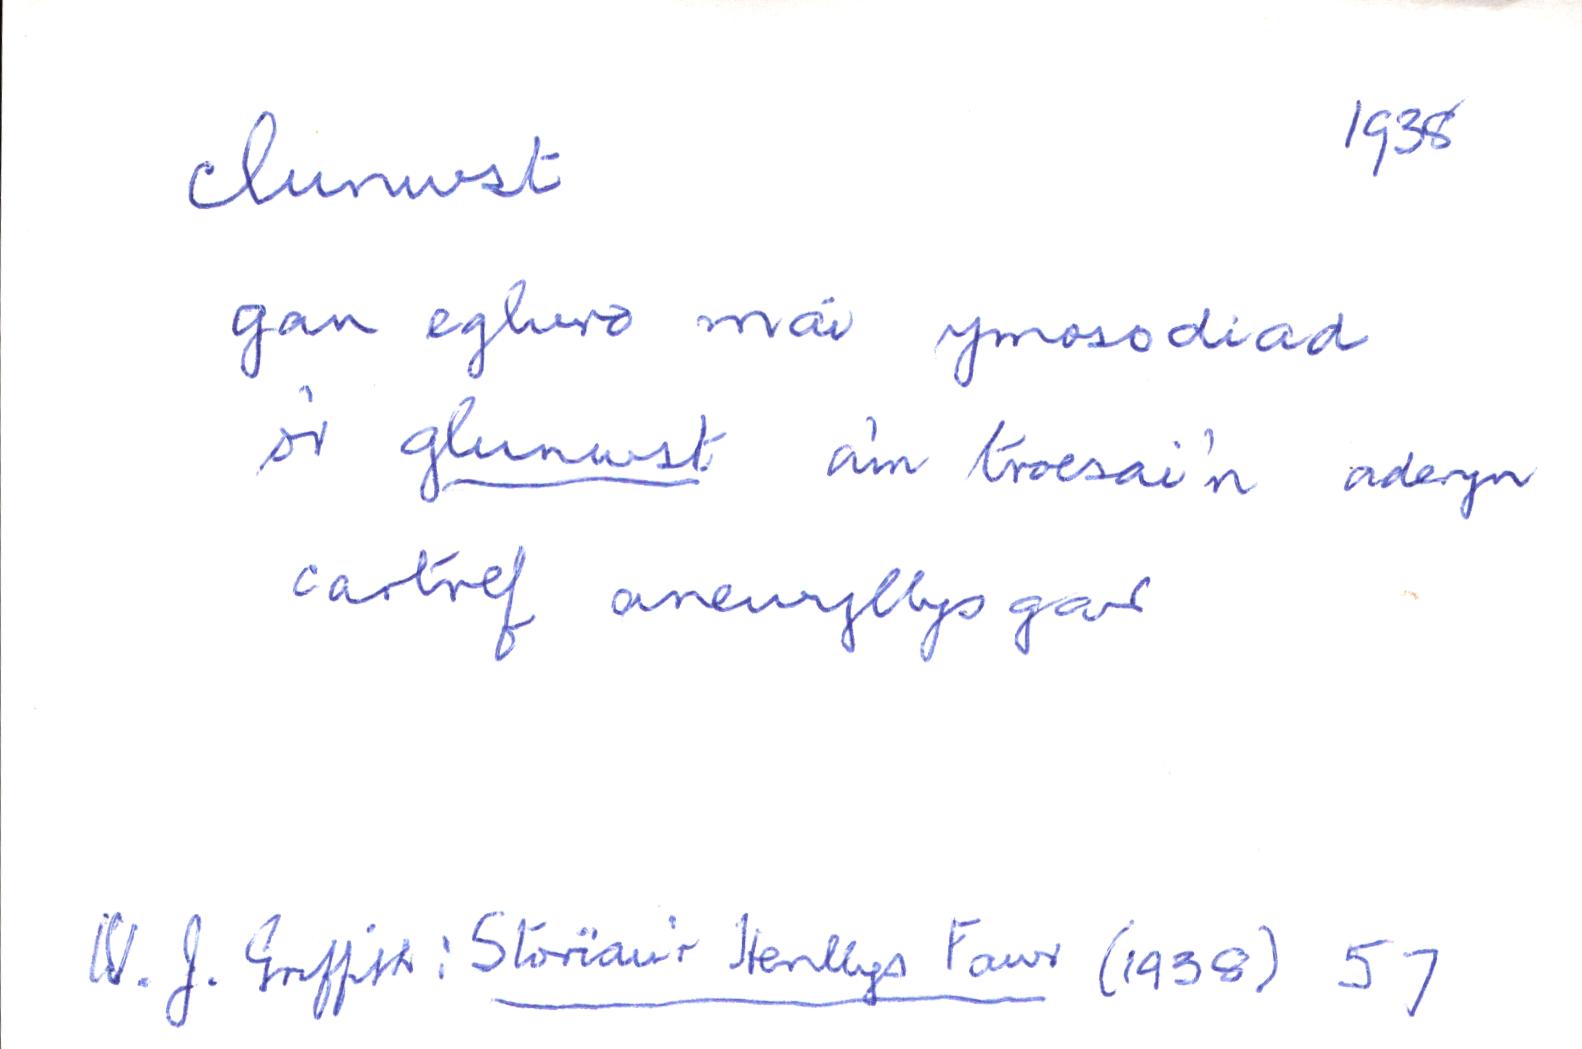 clunwst 1938
gan egluro mai ymosodiad
o'r glunwst a'm troesai'n aderyn
cartref anewyllysgar
W. J. Griffith: Storïau'r Henllys Fawr (1938) 57